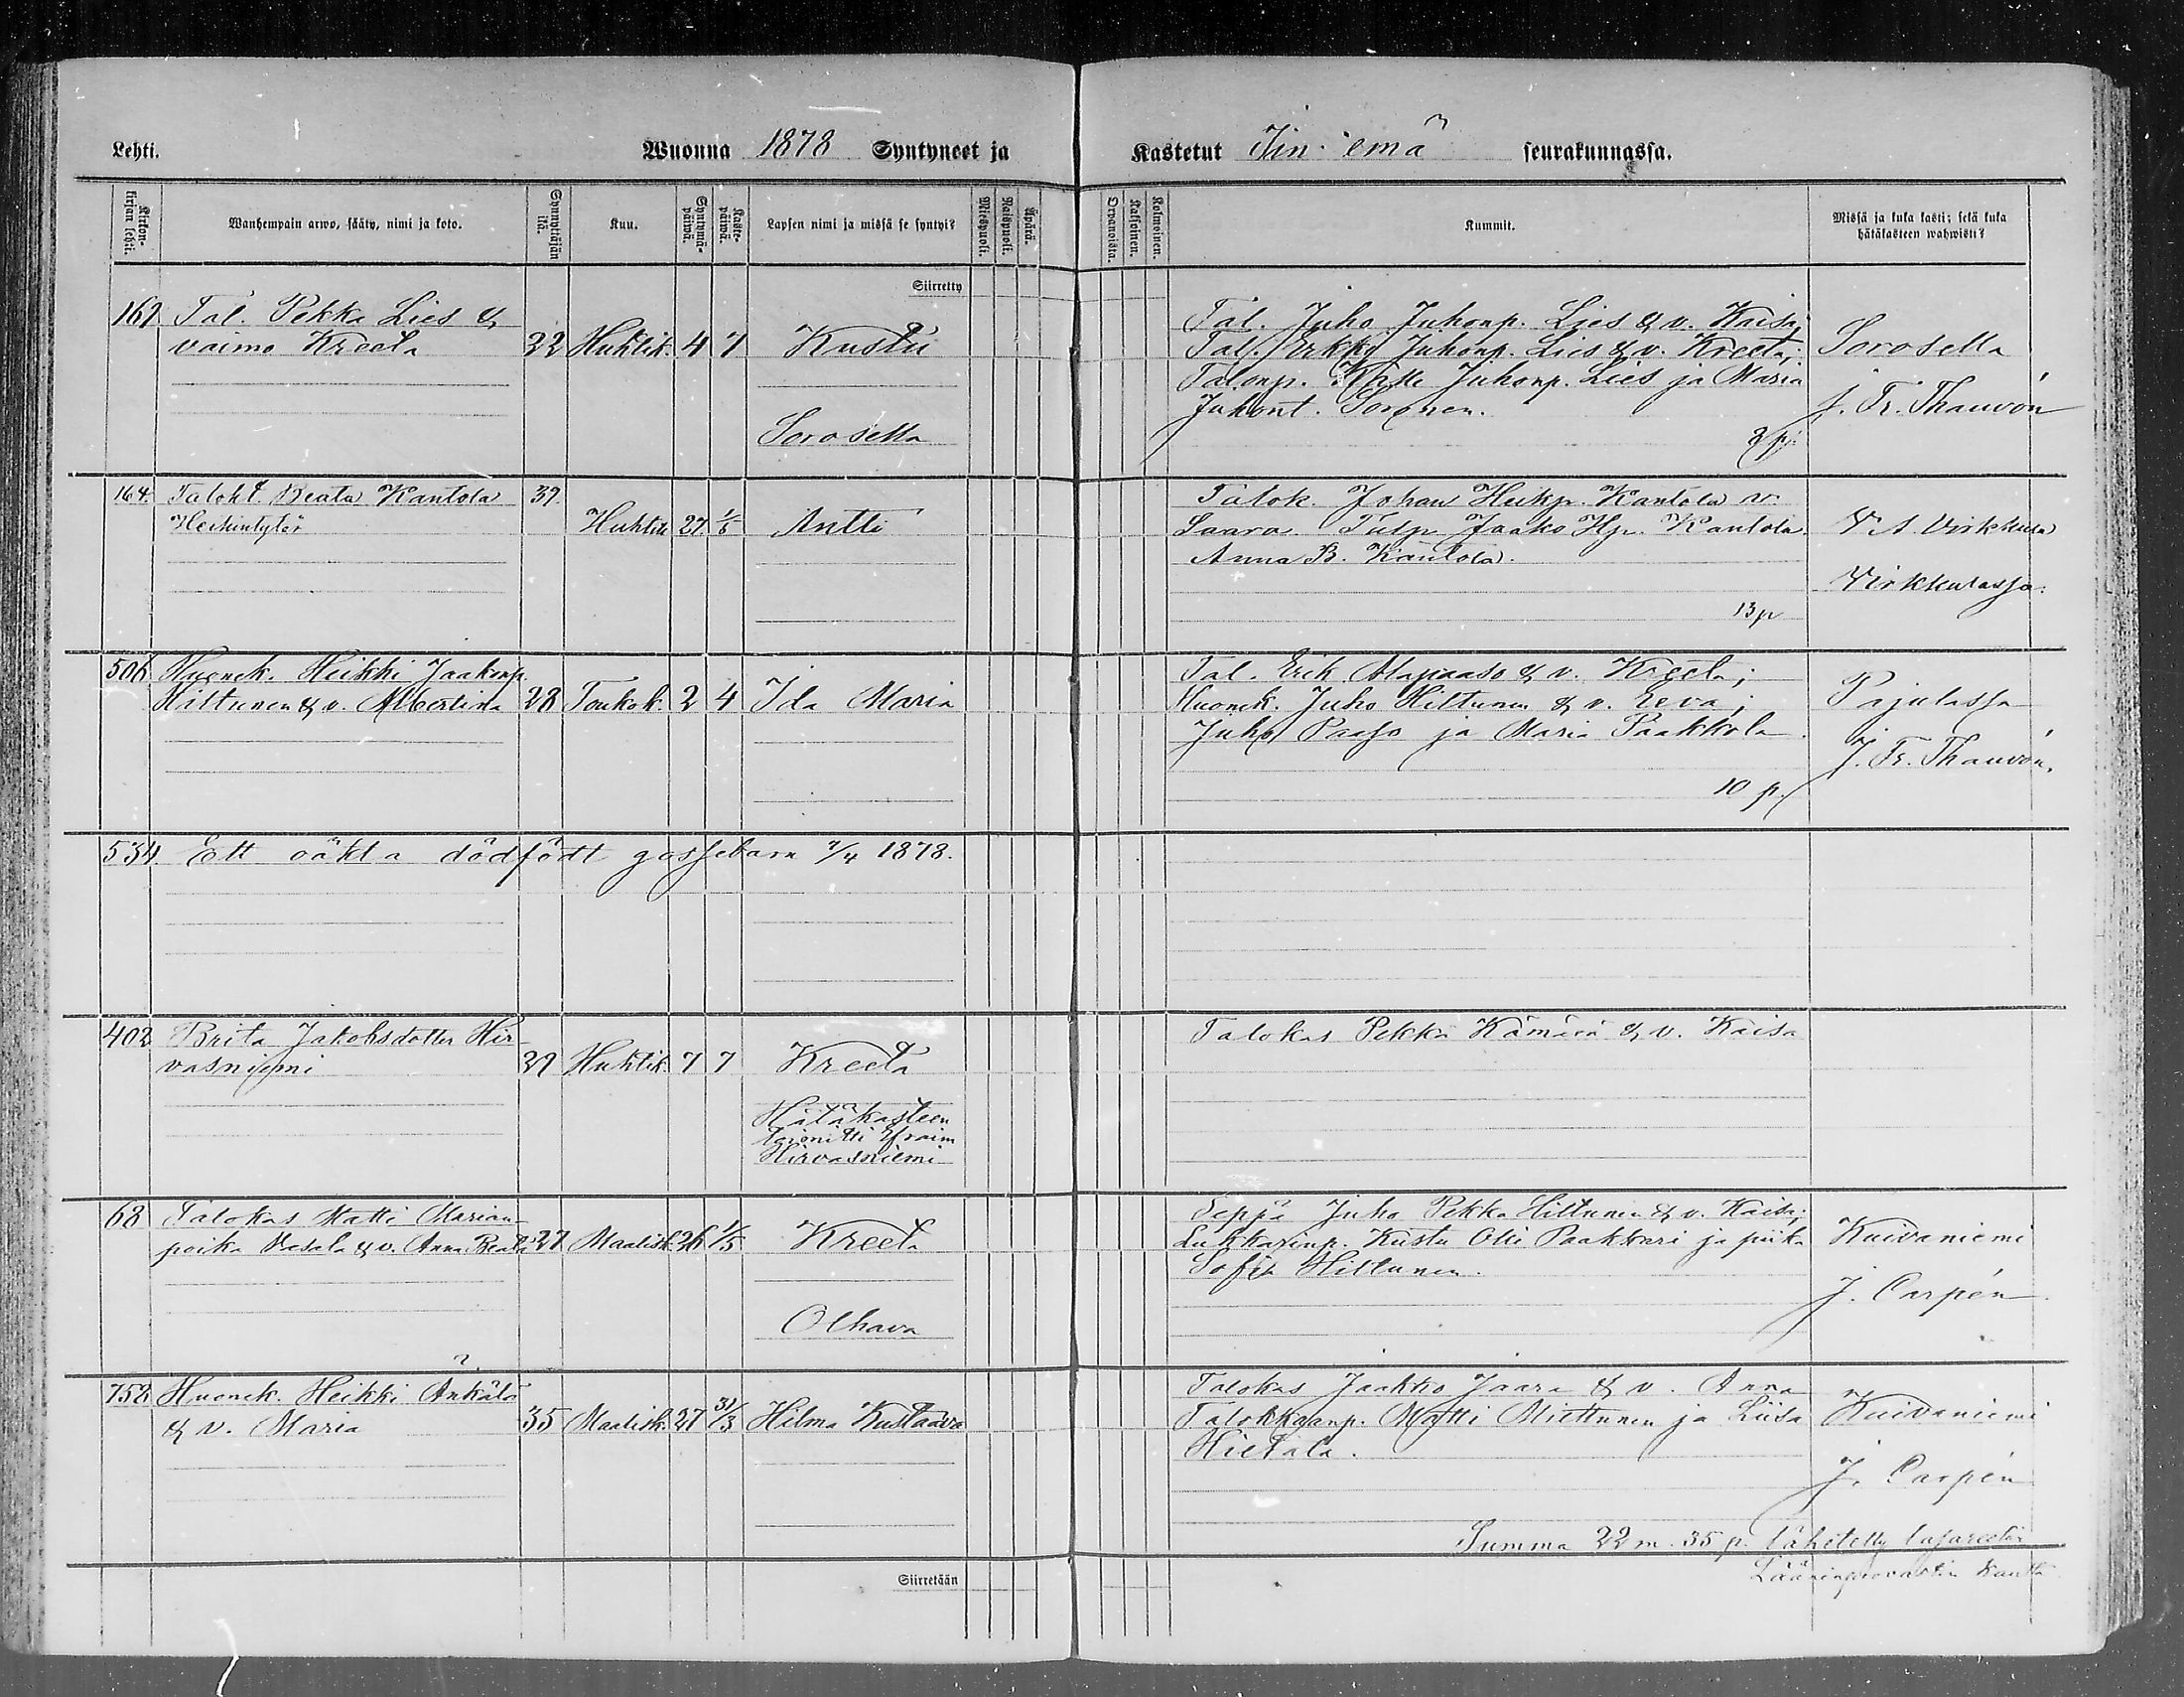 Lehti.
Wuonna 1878 Syntyneet ja Kastetut Iin emä seurakunnassa.
Kirkonkirjan lehti.
Wanhempain arwo, sääty, nimi ja koto.
Synnyttäjän ikä.
Kuu.
Syntymäpäiwä.
Kastepäiwä.
Lapsen nimi ja missä se syntyi?
Miespuoli.
Waimopuoli.
Äpärä.
Orwanoista.
Kaksoinen.
Kolmoinen.
Kummit.
Missä ja kuka kasti; sekä kuka hätäkasteen wahwisti?
Siirretty
169 Tal. Pekka Lies &
vaimo Kreeta 32 Huhtik. 4 7 Kustu
Sorosella
Tal. Juho Juhonp. Lies & v. Kaisa;
Tal. Erkki Juhonp. Lies & v. Kreeta;
Talonp. Kalle Juhonp. Lies ja Maria
Juhont. Soronen.
2 p.
Sorosella
J. Fr. Thauvón
164. Taloht. Beata Kantola 39.
Heikintytär Huhtik 27. 1/5 Antti
Talok. Johan Heikp. Kantola v.
Saara. Tulp Jaako Hp. Kantola.
Anna B. Kantola.
13 p
V. A. Virkkula
Virkkulassa.
506 Huonek. Heikki Jaakonp.
Hiltunen & v. Albertina 28 Toukok. 2 4 Ida Maria
Tal. Erik Alapaaso & v. Kreeta;
Huonek. Juho Hiltunen & v. Eeva;
Juho Paaso ja Maria Paakkola.
10 p.
Pajulassa
J. Fr. Thauvón.
534. Ett oäkta dödfödt gossebarn 7/4 1878.
402 Brita Jakobsdotter Hir-
vasniemi 39 Huhtik. 7 7 Kreeta
Hätäkasteen
toimitti Efraim
Hirvasniemi
Talokas Pekka Kämärä & v. Kaisa
68 Talokas Matti Marian-
poika Vasala & v. Anna Beata 27 Maalisk. 26 1/5 Kreeta
Olhava
Seppä Juho Pekka Hiltunen & v. Kaisa;
Lukkarinp. Kustu Olli Paakkari ja piika
Sofia Hiltunen.
Kuivaniemi
J. Carpén
758 Huonek. Heikki Ankälä
& v. Maria 35 Maalisk. 27 31/3 Hilma Kustaava
Talokas Jaakko Jaara & v. Anna
Talokkaanp. Matti Miettunen ja Liisa
Hietala.
Kuivaniemi
J. Carpén
Summa 22 m. 35 p. lähetetty lasareetin
Lääninprovastin kautta
Siirretään